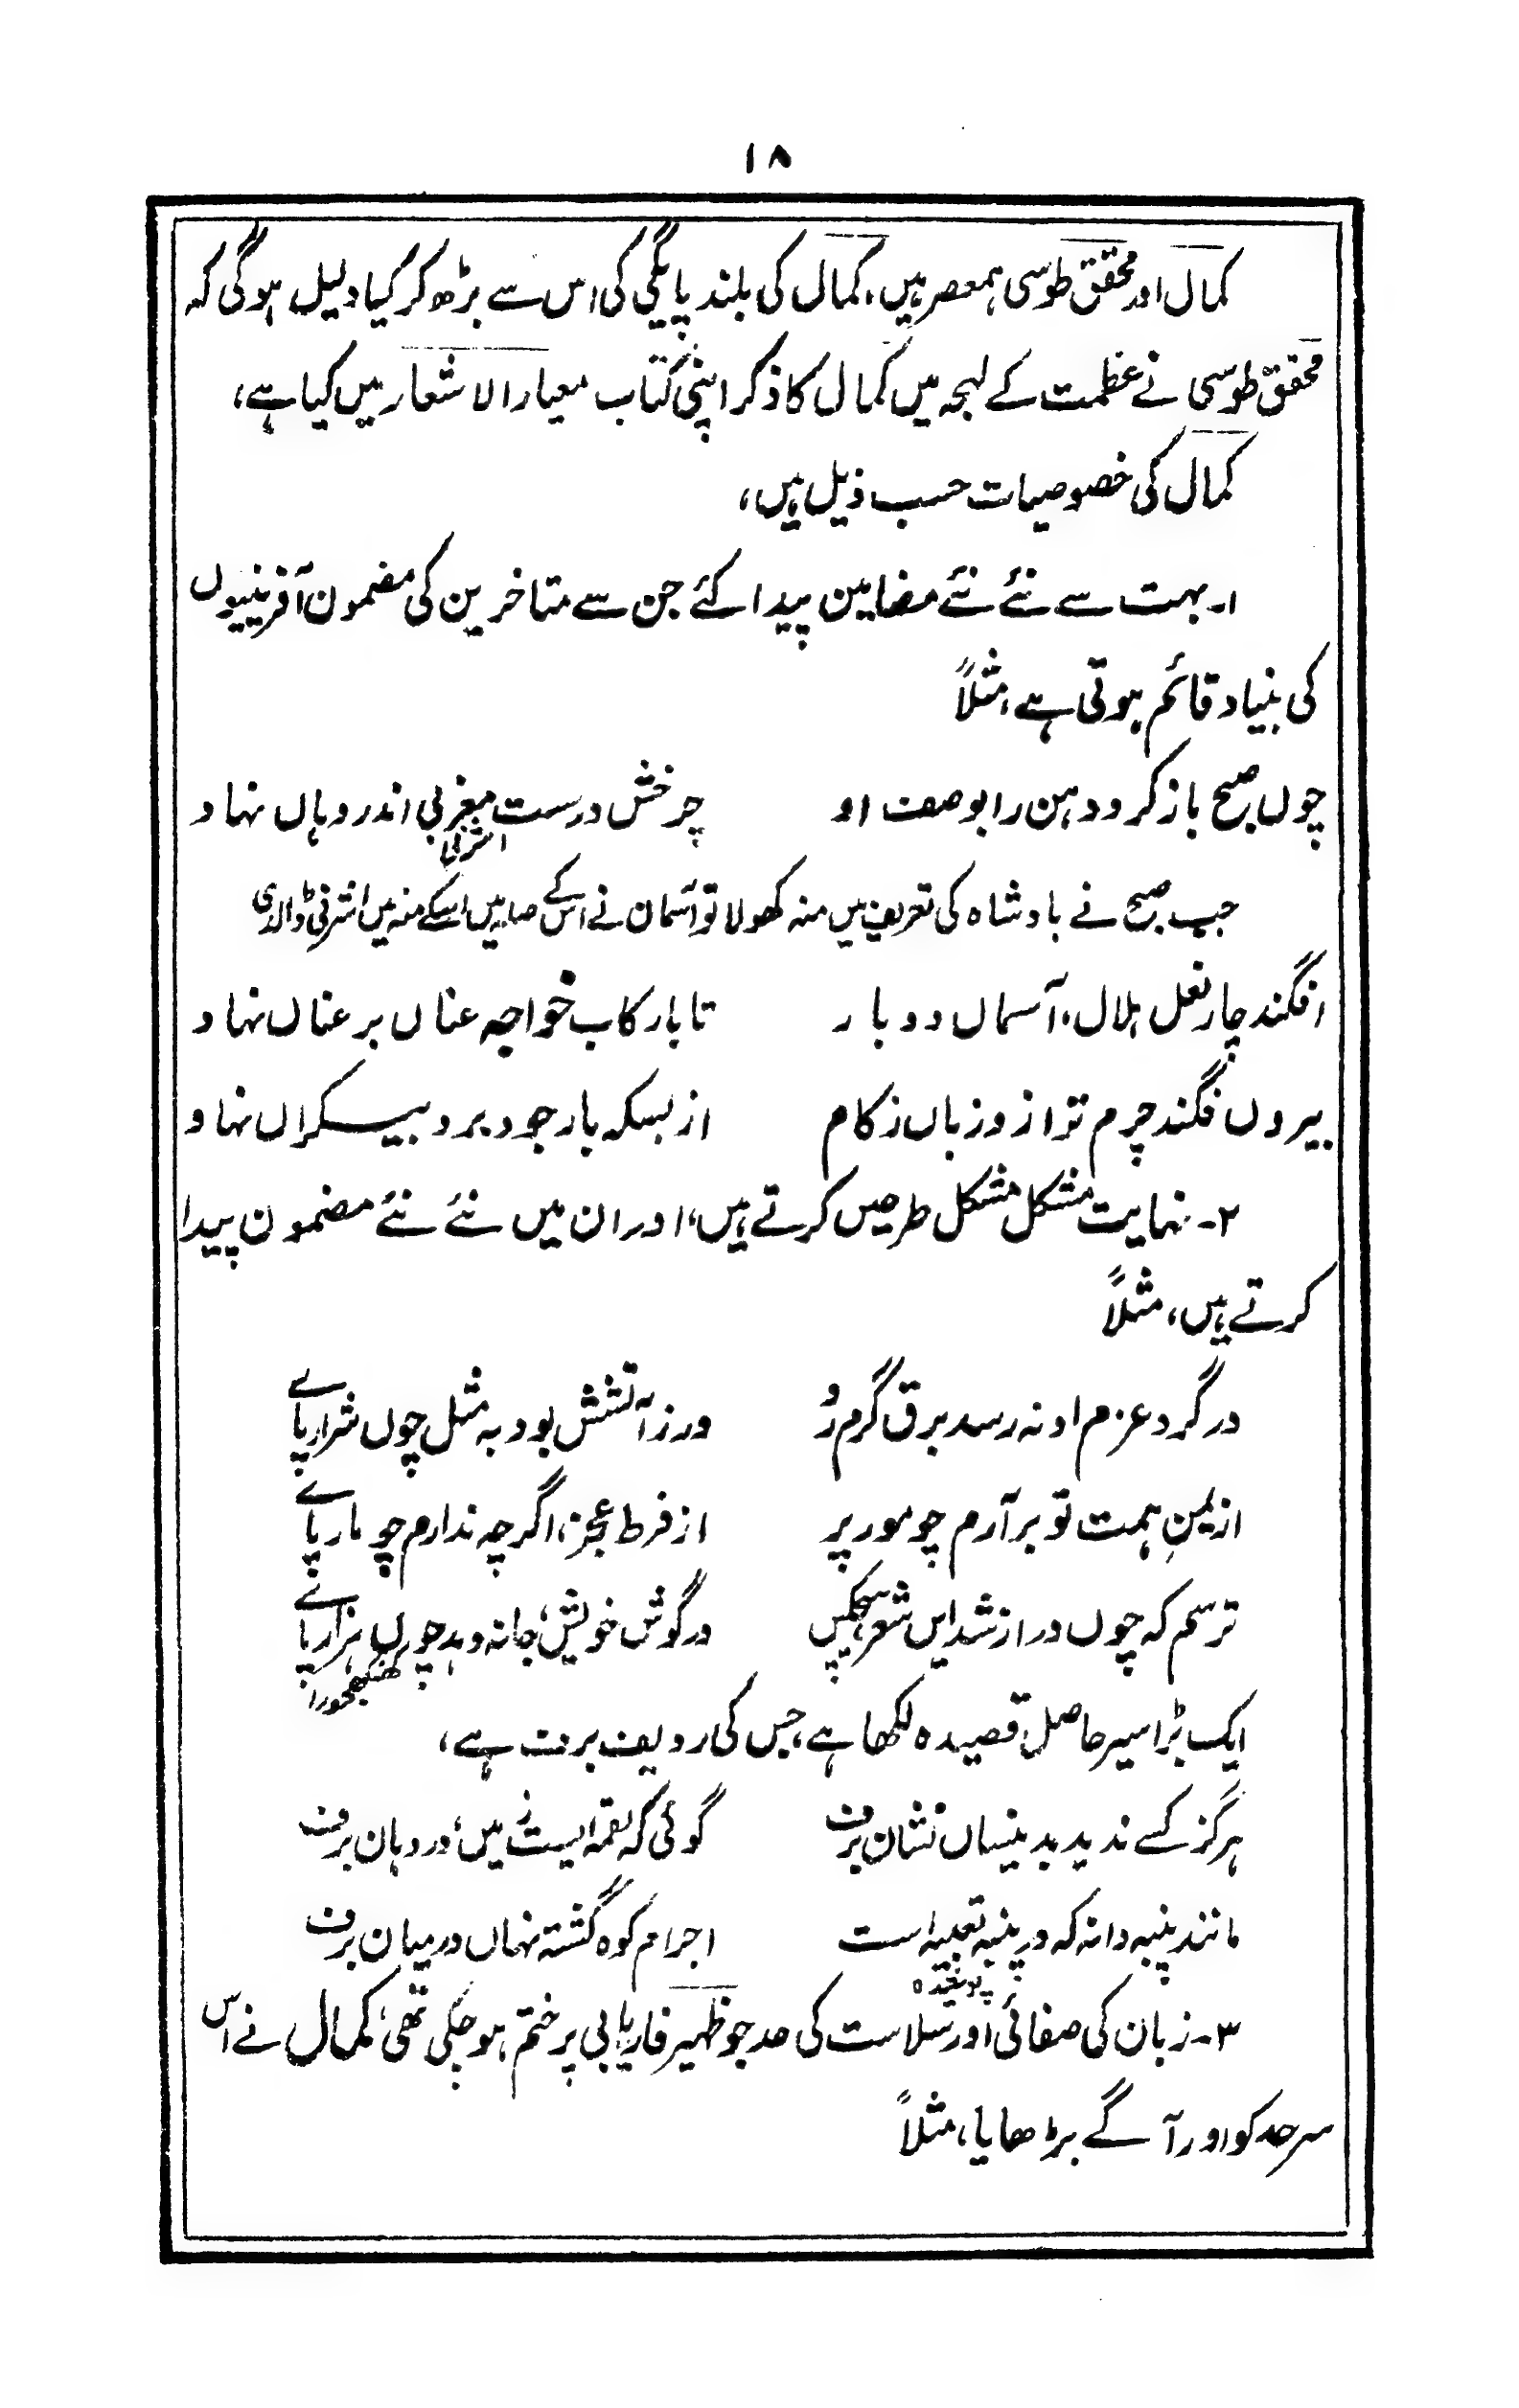 ۱۸
کمال اور محقق طوسی ہمعصر ہیں، کمال کی بلند پایگی کی اس سے بڑھ کر کیا دلیل ہوگی کہ
محقق طوسی نے عظمت کے لہجہ میں کمال کا ذکر اپنی کتاب معیار الاشعار میں کیا ہے،
کمال کی خصوصیات حسب ذیل ہیں،
۱۔ بہت سے نئے نئے مضامین پیدا کئے جن سے متاخرین کی مضمون آفرینیوں
کی بنیاد قائم ہوتی ہے، مثلاً
چوں صبح باز کرد دہن را بوصف او چرخش درست مغربی اندر دہاں نہاد
اشرفی
جب صبح نے بادشاہ کی تعریف میں منہ کھولا تو آسمان نے اس کے صلہ میں اسکے منہ میں اشرفی ڈالدی
افگند چار نعل ہلال، آسماں دو بار تا با رکاب خواجہ عناں بر عناں نہاد
بیروں فگند چرم ترازو زباں ز کام از بسکہ بار جود برو بیکراں نہاد
۲۔ نہایت مشکل مشکل طرحیں کرتے ہیں، اور ان میں نئے نئے مضمون پیدا
کرتے ہیں، مثلاً
در گرد عزم او نہ رسد برق گرم رَو ور ز آتشش بود بہ مثل چوں شرار پاے
از یمنِ ہمت تو بر آرم چو مور پر از فرط عجز، اگرچہ ندارم چو مار پاے
ترسم کہ چوں دراز شد ایں شعر، ہمچکیں در گوش خویش، جانہ دہد چوں ہزار پاے
کھنکھجورا
ایک بڑا سیر حاصل قصیدہ لکھا ہے، جس کی ردیف برف ہے،
ہرگز کسے ندید بدینساں نشان برف گوئی کہ لقمہ ایست زمیں، در دہان برف
مانند پنبہ دانہ کہ در پنبہ تعبیہ است اجرام کوہ گشتہ نہاں درمیان برف
پوشیدہ
۳۔ زبان کی صفائی اور سلاست کی حد جو ظہیر فاریابی پر ختم ہوچکی تھی، کمال نے اس
سرحد کو اور آگے بڑھایا، مثلاً